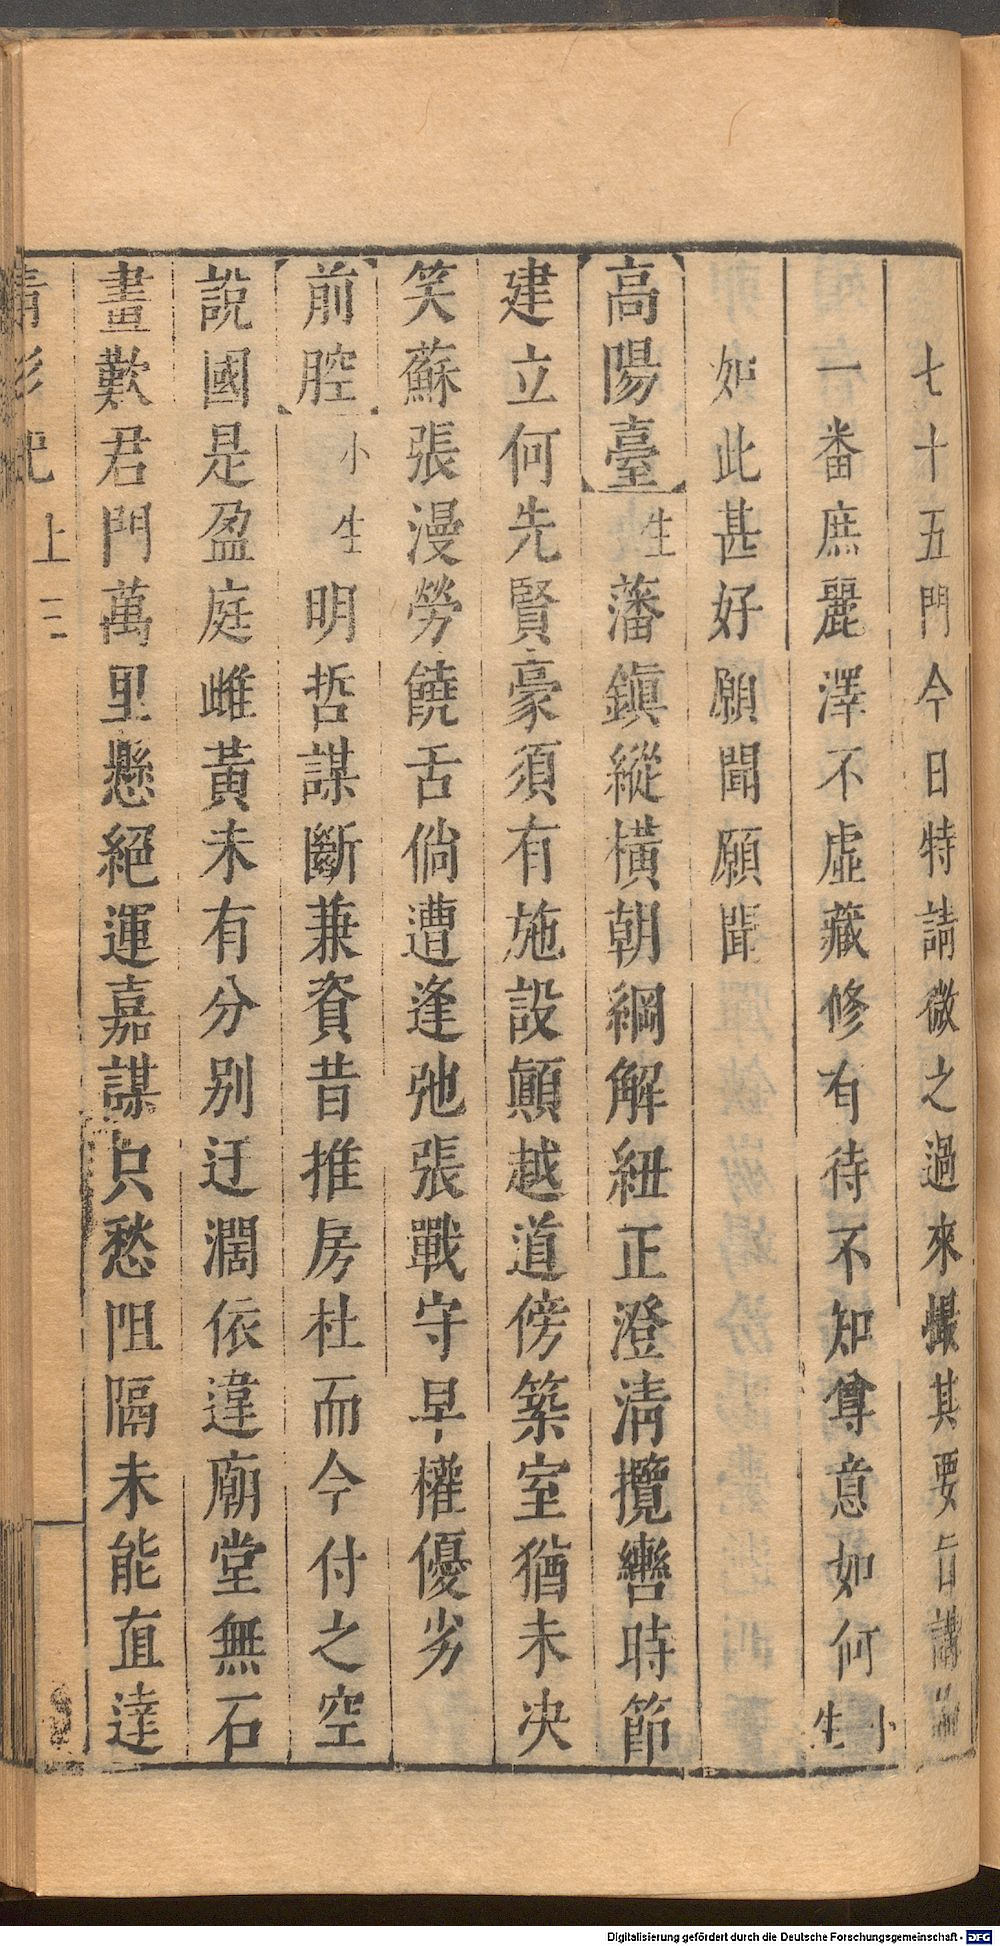 七十五門今日特請微之過來撮其要旨講論
一番庶麗澤不虛藏修有待不知尊意如何小生
如此甚好願聞願聞
高陽臺生藩鎭縱橫朝綱解紐正澄淸攬轡時節
建立何先賢豪須有施設顚越道傍築室猶未决
笑蘇張漫勞饒舌倘遭逢弛張戰守早權優劣
前腔小生明哲謀斷兼資昔推房杜而今付之空
說國是盈庭雌黃未有分別迂濶依違廟堂無石
畫歎君門萬里懸絕運嘉謀只愁阻隔未能直達
上 三
Digitalisierung gefördert durch die Deutsche Forschungsgemeinschaft - DFG